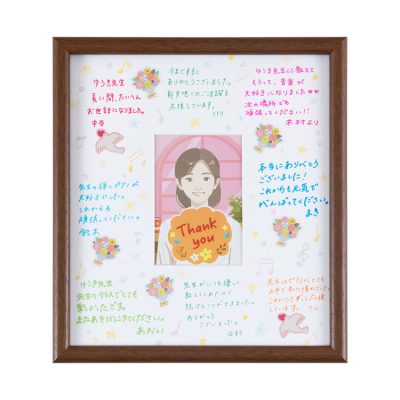 ゆうき先生
長い間、たいへん
お世話になりました。
中谷
今まで本当に
ありがとうございました。
新天地でのご活躍を
応援しています。
ゆうき先生に教えて
もらって、音楽が
大好きになりました♥♥
次の場所でも
頑張ってください!!
木村より
先生の弾くピアノが
大好きでした。
これからも
頑張ってください。
鈴木
Thank
you
本当にありがとう
ございました!
これからも元気で
がんばってください。
まき
ゆうき先生
先生のクラスでとても
楽しかったです。
またあそびにきてください。
あおい
先生がいつも優しく
教えてくれたので
続けることができました。
ありがとう
ございました。
田村